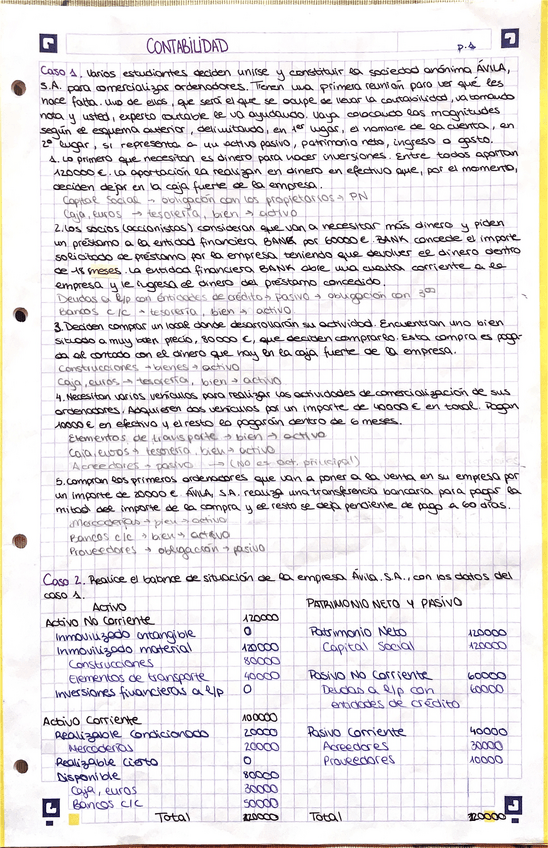 CONTABILIDAD
p.4
Caso 1. Varios estudiantes deciden unirse y constituir la sociedad anónima ÁVILA,
S.A. para comercializar ordenadores. Tienen una primera reunión para ver qué les
hace falta. Uno de ellos, que será el que se ocupe de llevar la contabilidad, va tomando
nota y usted, experto contable le va ayudando. Vaya colocando las magnitudes
según el esquema anterior, delimitando, en 1er lugar, el nombre de la cuenta, en
2º lugar, si representa a un activo pasivo, patrimonio neto, ingreso o gasto.
1. Lo primero que necesitan es dinero para hacer inversiones. Entre todos aportan
120000 €. La aportación la realizan en dinero en efectivo que, por el momento,
deciden dejar en la caja fuerte de la empresa.
Capital Social → obligación con los propietarios → PN
Caja, euros → tesorería, bien → activo
2. Los socios (accionistas) consideran que van a necesitar más dinero y piden
un préstamo a la entidad financiera BANK por 60000 €. BANK concede el importe
solicitado de préstamo por la empresa teniendo que devolver el dinero dentro
de 18 meses. La entidad financiera BANK abre una cuenta corriente a la
empresa y le ingresa el dinero del préstamo concedido.
Deudas a l/p con entidades de crédito → pasivo → obligación con 3os
Bancos c/c → tesorería, bien → activo
3. Deciden comprar un local donde desarrollarán su actividad. Encuentran uno bien
situado a muy buen precio, 80000 €, que deciden comprarlo. Esta compra es paga-
da al contado con el dinero que hay en la caja fuerte de la empresa.
Construcciones → bienes → activo
Caja, euros → tesorería, bien → activo
4. Necesitan varios vehículos para realizar las actividades de comercialización de sus
ordenadores. Adquieren dos vehículos por un importe de 40000 € en total. Pagan
10000 € en efectivo y el resto lo pagarán dentro de 6 meses.
Elementos de transporte → bien → activo
Caja, euros → tesorería, bien → activo
Acreedores → pasivo → (No es act. principal)
5. Compran los primeros ordenadores que van a poner a la venta en su empresa por
un importe de 20000 €. ÁVILA, S.A. realiza una transferencia bancaria para pagar la
mitad del importe de la compra y el resto se deja pendiente de pago a 60 días.
Mercaderías → bien → activo
Bancos c/c → bien → activo
Proveedores → obligación → pasivo
Caso 2. Realice el balance de situación de la empresa Ávila. S.A., con los datos del
caso 1.
ACTIVO
Activo No Corriente 120000
Inmovilizado intangible 0
Inmovilizado material 120000
Construcciones 80000
Elementos de transporte 40000
Inversiones financieras a l/p 0
Activo Corriente 100000
Realizable Condicionado 20000
Mercaderías 20000
Realizable Cierto 0
Disponible 80000
Caja, euros 30000
Bancos c/c 50000
Total 220000
PATRIMONIO NETO Y PASIVO
Patrimonio Neto 120000
Capital Social 120000
Pasivo No Corriente 60000
Deudas a l/p con 60000
entidades de crédito
Pasivo Corriente 40000
Acreedores 30000
Proveedores 10000
Total 220000